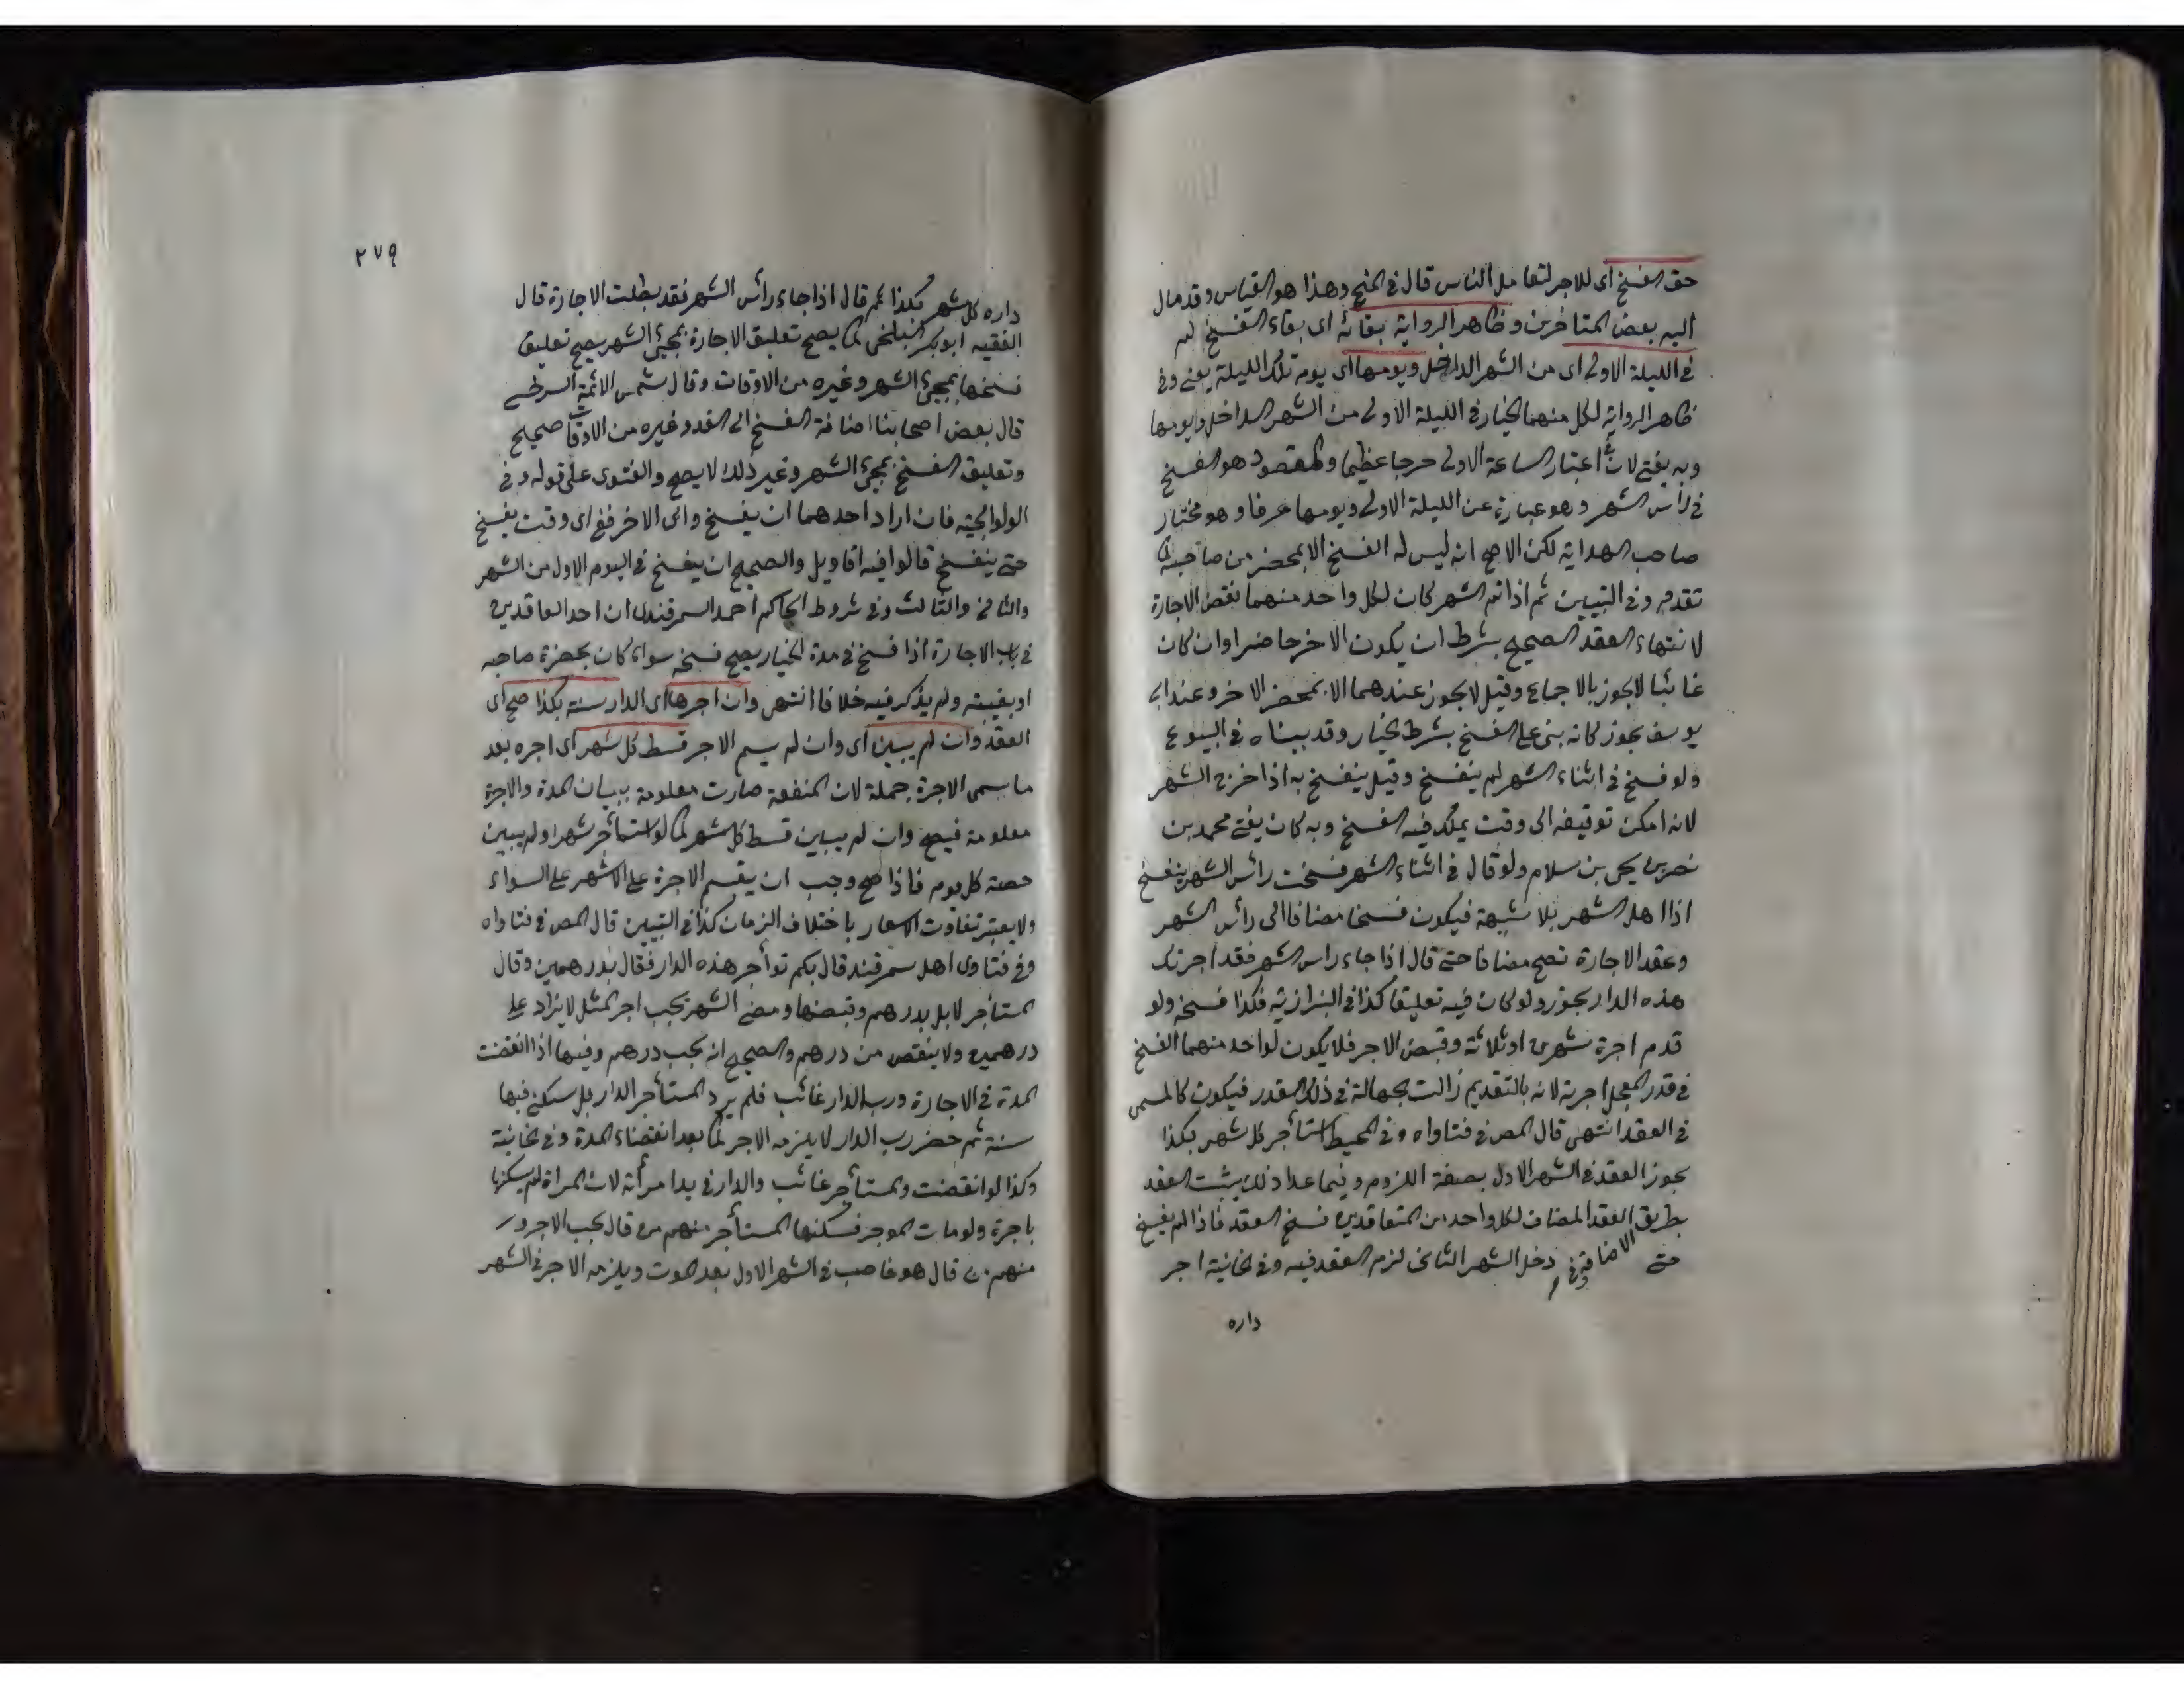 حق الفسخ اى للاجر لتعامل الناس قال فى المنح وهذا هو القياس وقد مال
اليه بعض المتاخرين وظاهر الرواية بقائه اى بقاء الفسخ له
فى الليلة الاولى اى من الشهر الداخل ويومها اى يوم تلك الليلة يعنى وفى
ظاهر الرواية لكل منهما الخيار فى الليلة الاولى من الشهر الداخل ويومها
وبه يفتى لان فى اعتبار الساعة الاولى حرجا عظيما والمقصود هو الفسخ
فى رأس الشهر وهو عبارة عن الليلة الاولى ويومها عرفا وهو مختار
صاحب الهداية لكن الاصح انه ليس له الفسخ الا بمحضر من صاحبه كما
تقدم وفى التبيين ثم اذا تم الشهر كان لكل واحد منهما نقض الاجارة
لانتهاء العقد الصحيح بشرط ان يكون الاخر حاضرا وان كان
غائبا لا يجوز بالاجماع وقيل لا يجوز عندهما الا بمحضر الاخر وعند ابى
يوسف يجوز كانه بنى على الفسخ بشرط الخيار وقد بيناه فى البيوع
ولو فسخ فى اثناء الشهر لم ينفسخ وقيل ينفسخ به اذا خرج الشهر
لانه امكن توقيفه الى وقت يملك فيه الفسخ وبه كان يفتى محمد بن
نصر بن يحيى بن سلام ولو قال فى اثناء الشهر فسخت رأس الشهر ينفسخ
اذا اهل الشهر بلا شبهة فيكون فسخا مضافا الى رأس الشهر
وعقد الاجارة تصح مضافا حتى قال اذا جاء راس الشهر فقد اجرتك
هذه الدار يجوز ولو كان فيه تعليقا كذا فى البزازية فكذا فسخه ولو
قدم اجرة شهرين او ثلاثة وقبض الاجر فلا يكون لواحد منهما الفسخ
فى قدر المعجل اجرته لانه بالتقديم زالت الجهالة فى ذلك القدر فيكون كالمسمى
فى العقد انتهى قال المص فى فتاواه وفى المحيط استأجر كل شهر بكذا
يجوز العقد فى الشهر الاول بصفة اللزوم وفيما عدا ذلك يثبت العقد
بطريق العقد المضاف لكل واحد من المتعاقدين فسخ العقد فاذا لم يفسخ
حتى دخل الشهر الثانى لزم العقد فيه وفى الخانية اجر
داره
٢٧٩
داره كل شهر بكذا ثم قال اذا جاء رأس الشهر فقد بطلت الاجارة قال
الفقيه ابو بكر البلخى كما يصح تعليق الاجارة بمجئ الشهر يصح تعليق
فسخها بمجئ الشهر وغيره من الاوقات وقال شمس الائمة السرخسى
قال بعض اصحابنا اضافة الفسخ الى الغد وغيره من الاوقات صحيح
وتعليق الفسخ بمجئ الشهر وغير ذلك لا يصح والفتوى على قوله وفى
الولوالجية فان اراد احدهما ان يفسخ وابى الاخر ففى اى وقت يفسخ
حتى ينفسخ قالوا فيه اقاويل والصحيح ان يفسخ فى اليوم الاول من الشهر
والثانى والثالث وفى شروط الحاكم احمد السمرقندى ان احد العاقدين
فى باب الاجارة اذا فسخ فى مدة الخيار يصح فسخه سواء كان بحضرة صاحبه
او بغيبته ولم يذكر فيه خلافا انتهى وان اجرها اى الدار سنة بكذا صح اى
العقد وان لم يبين اى وان لم يسم الاجر قسط كل شهر اى اجره بعد
ما سمى الاجرة جملة لان المنفعة صارت معلومة ببيان المدة والاجرة
معلومة فيصح وان لم يبين قسط كل شهر كما لو استأجر شهرا ولم يبين
حصة كل يوم فاذا صح وجب ان يقسم الاجرة على الاشهر على السواء
ولا يعتبر تفاوت الاسعار باختلاف الزمان كذا فى التبيين قال المص فى فتاواه
وفى فتاوى اهل سمرقند قال بكم تواجر هذه الدار فقال بدرهمين وقال
المستأجر لا بل بدرهم وقبضها ومضى الشهر يجب اجر المثل لا يزاد على
درهمين ولا ينقص من درهم والصحيح انه يجب درهم وفيها اذا انقضت
المدة فى الاجارة ورب الدار غائب فلم يرد المستأجر الدار بل سكن فيها
سنة ثم حضر رب الدار لا يلزمه الاجر لما بعد انقضاء المدة وفى الخانية
وكذا لو انقضت والمستأجر غائب والدار فى يد امرأته لان المرأة لم يسكنها
باجرة ولو مات الموجر فسكنها المستأجر منهم من قال يجب الاجر و
منهم من قال هو غاصب فى الشهر الاول بعد الموت ويلزمه الاجر فى الشهر